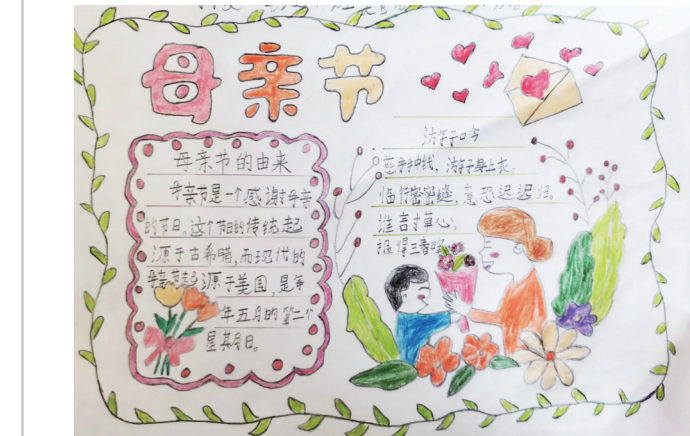 母亲节
母亲节的由来
母亲节是一个感谢母亲
的节日。这个节日的传统起
源于古希腊,而现代的
母亲节起源于美国,是每
年五月的第二个
星期日。
游子吟
慈母手中线,游子身上衣。
临行密密缝,意恐迟迟归。
谁言寸草心,
报得三春晖